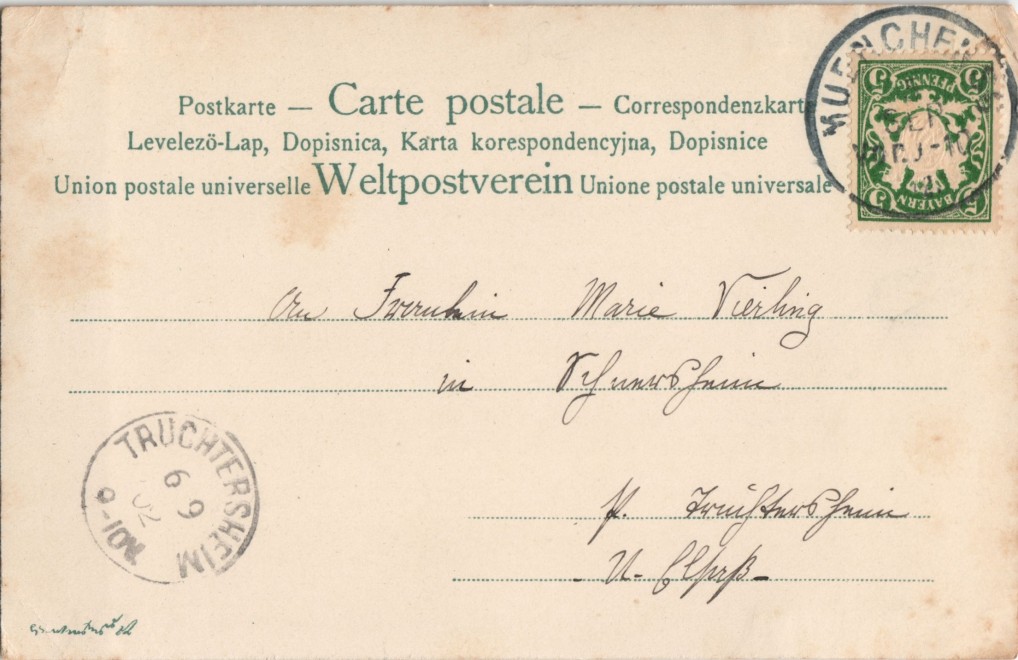 Postkarte — Carte postale — Correspondenzkarte
Levelező-Lap, Dopisnica, Karta korespondencyjna, Dopisnice
Union postale universelle Weltpostverein Unione postale universale
MUENCHEN
5 PFENNIG 5
5 BAYERN 5
An Fräulein Marie Vierling
in Schnersheim
TRUCHTERSHEIM
6 9
02
9-10V
p. Truchtersheim
U. Elsaß